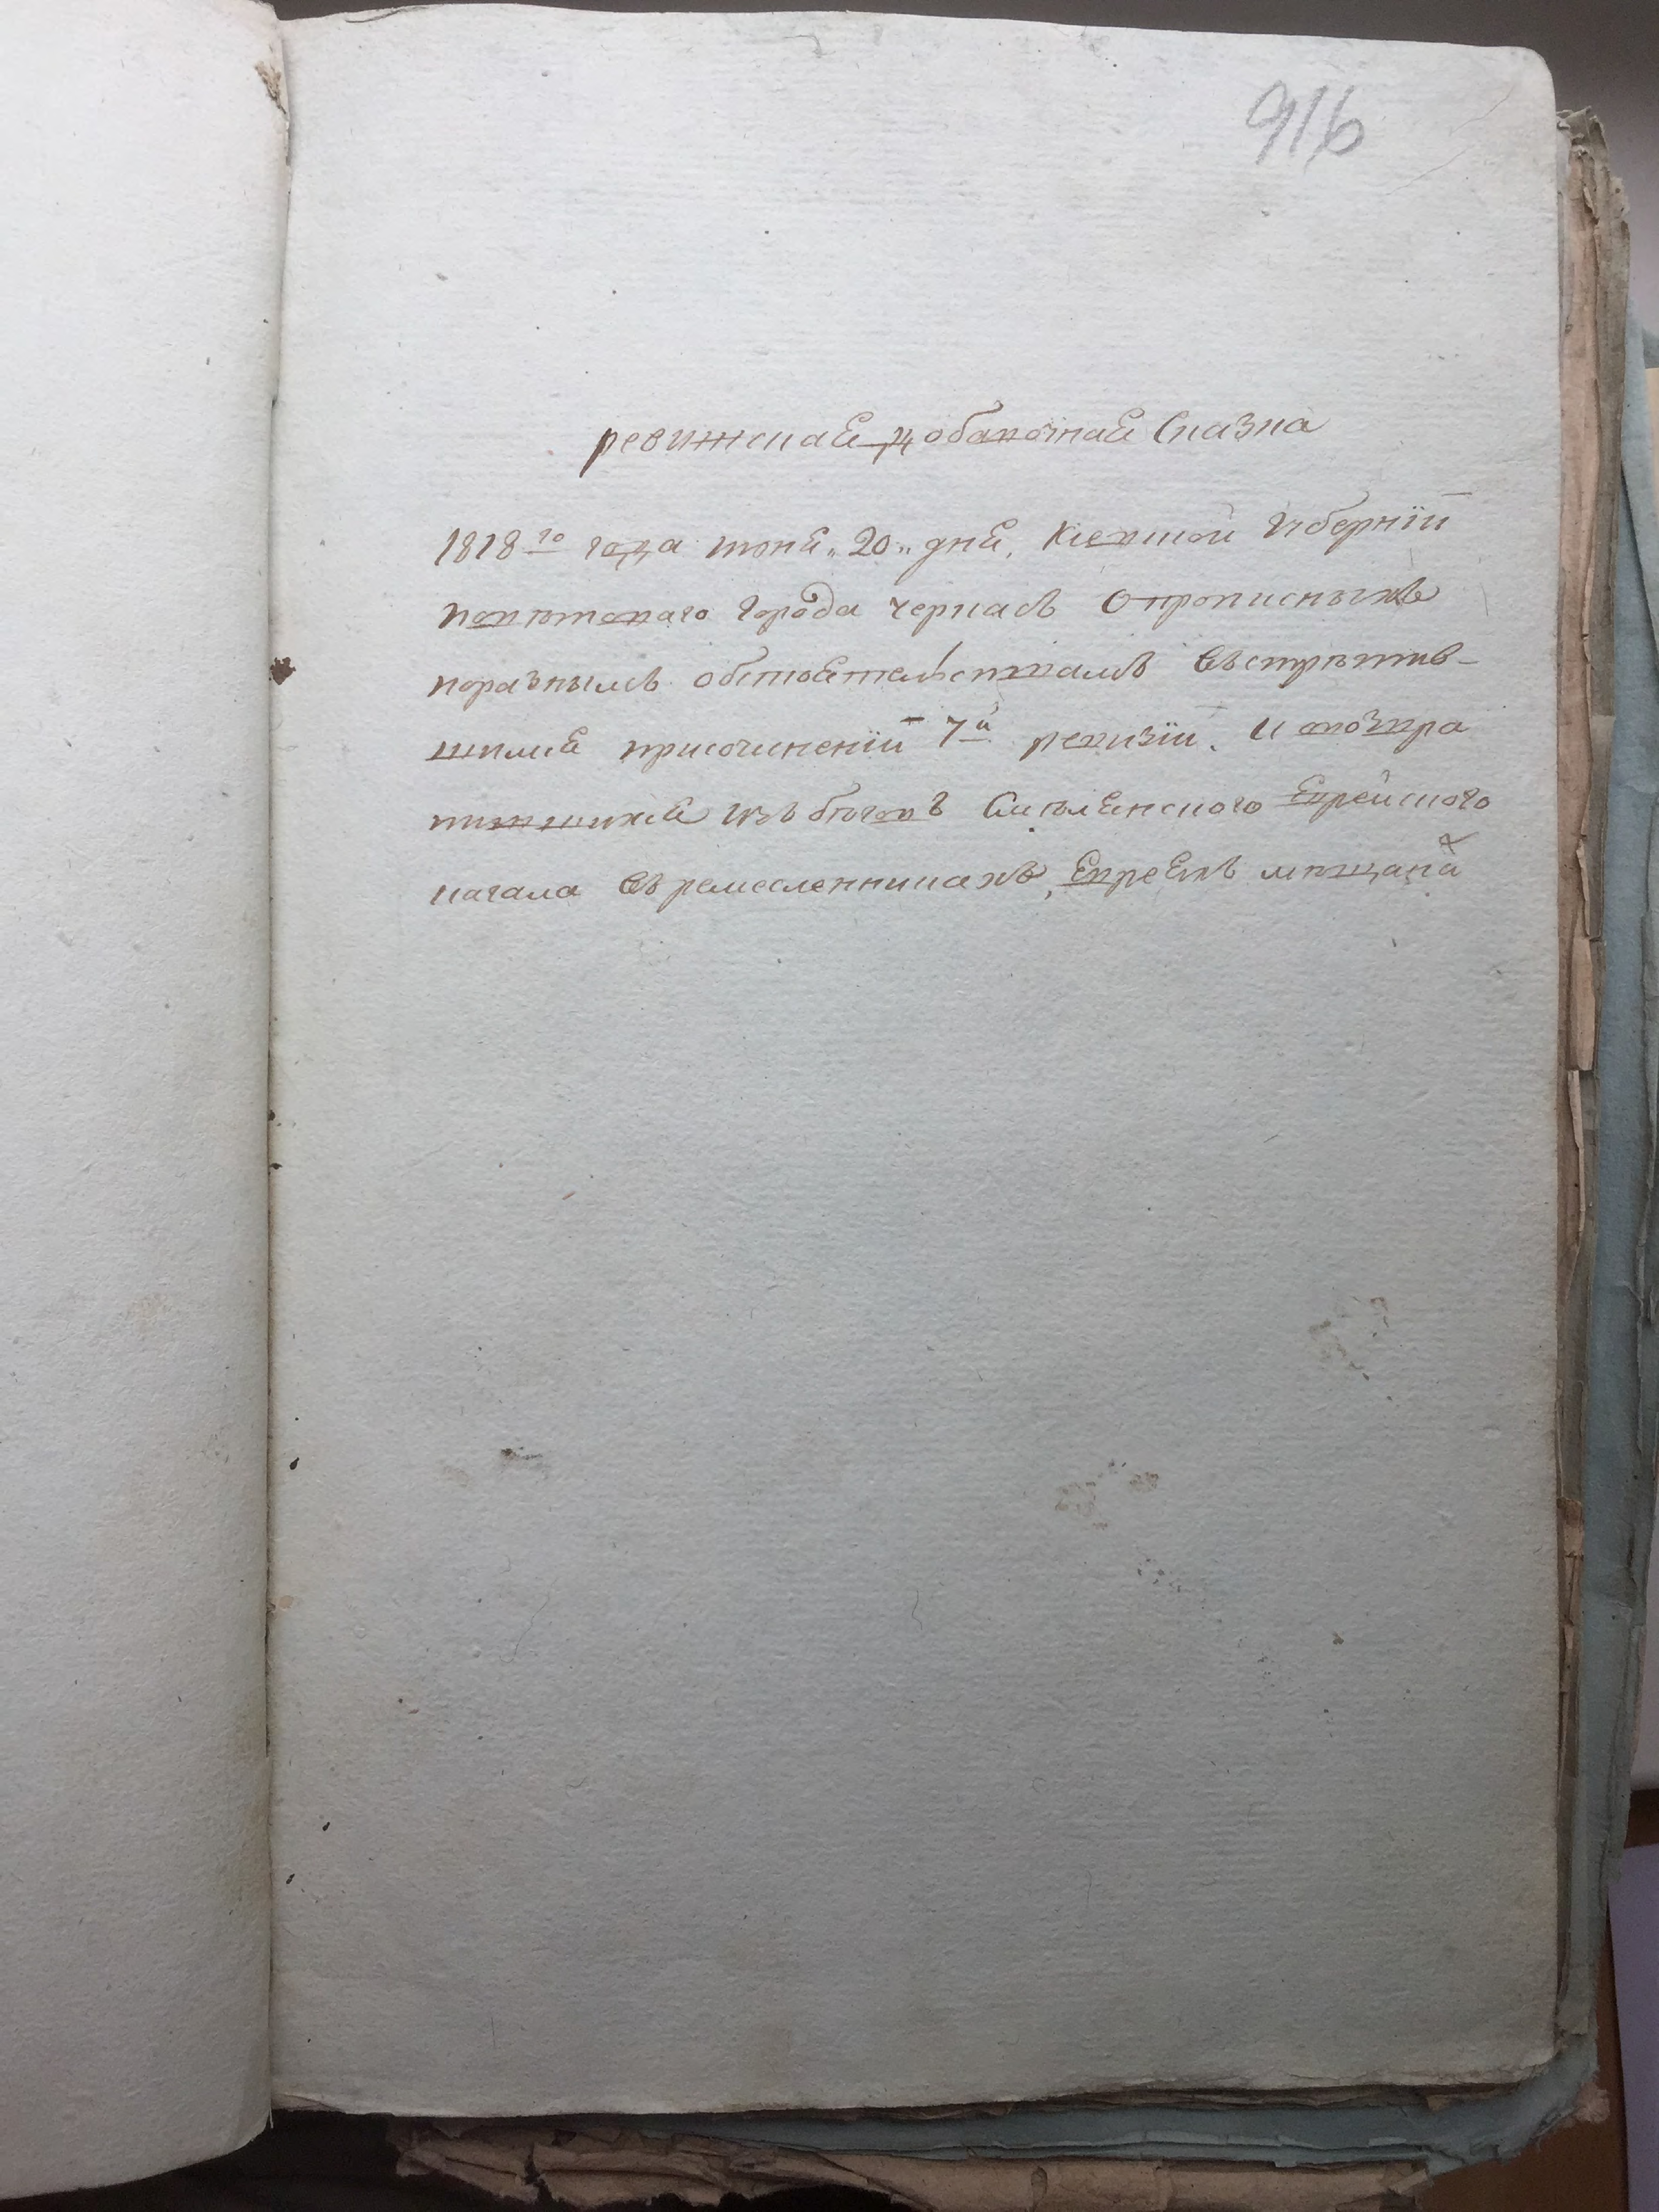 916
ревижская добавочная Сказка
1818го года июня „20„ дня, Киевской Губернїи
поветоваго города черкасъ О прописныхъ
поразнымъ обстоятельствамъ
присочиненїи 7й ревизїи. И возвра
тившихся изъ бегов Смелянского Еврейского
кагала въ ремесленникахъ, Евреяхъ мещанах